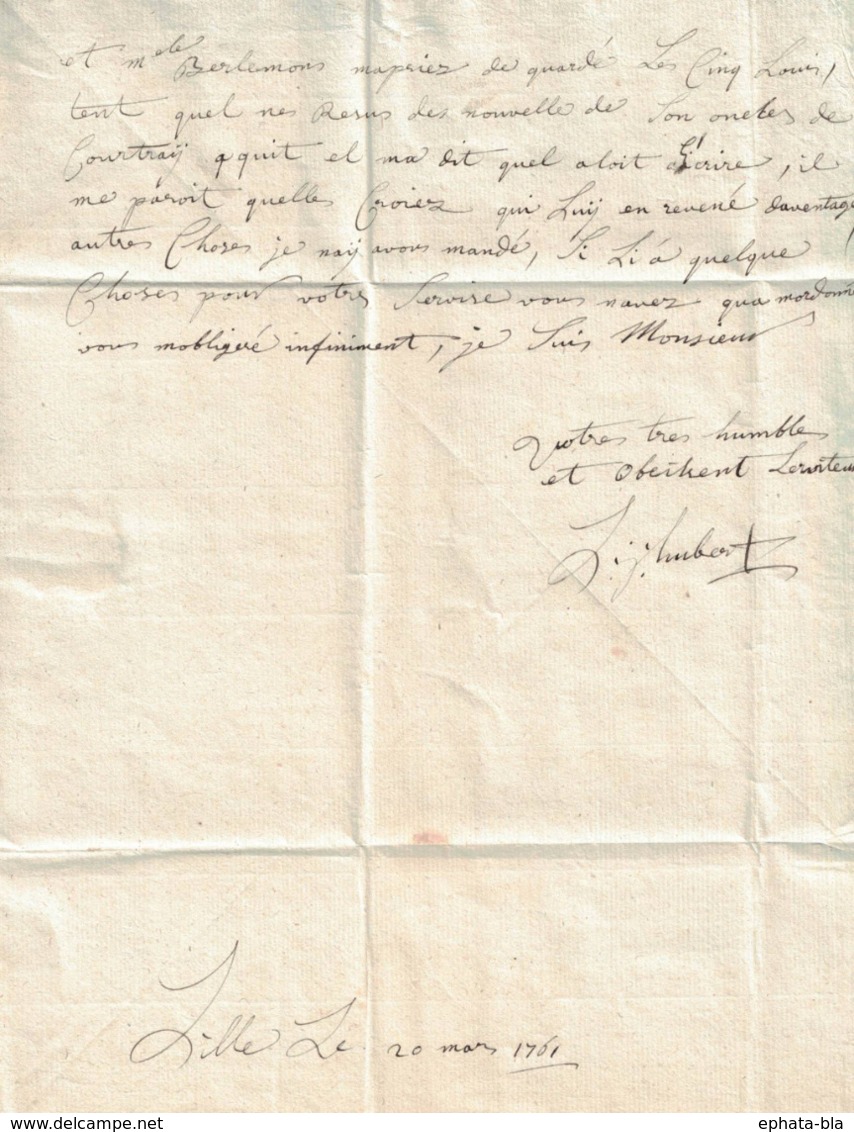 et mele Berlemons mapriez de quardé Les Cinq Louis,
tent quel nes Resus des nouvelle de Son oncles de
Courtraÿ a quit el ma dit quel aloit Ecrire, il
me paroit quelles Croiez qui Luÿ en revené daventage
autres Choses je naÿ avous mandé, Si Li a quelque
Choses pour votres Servise vous navez qua mordonné
vous mobligeré infiniment, je Suis Monsieur
Votres tres humbles
et Obeissent Serviteur
L. j. hubert
Lille Le 20 mars 1761
delcampe.net
ephata-bla